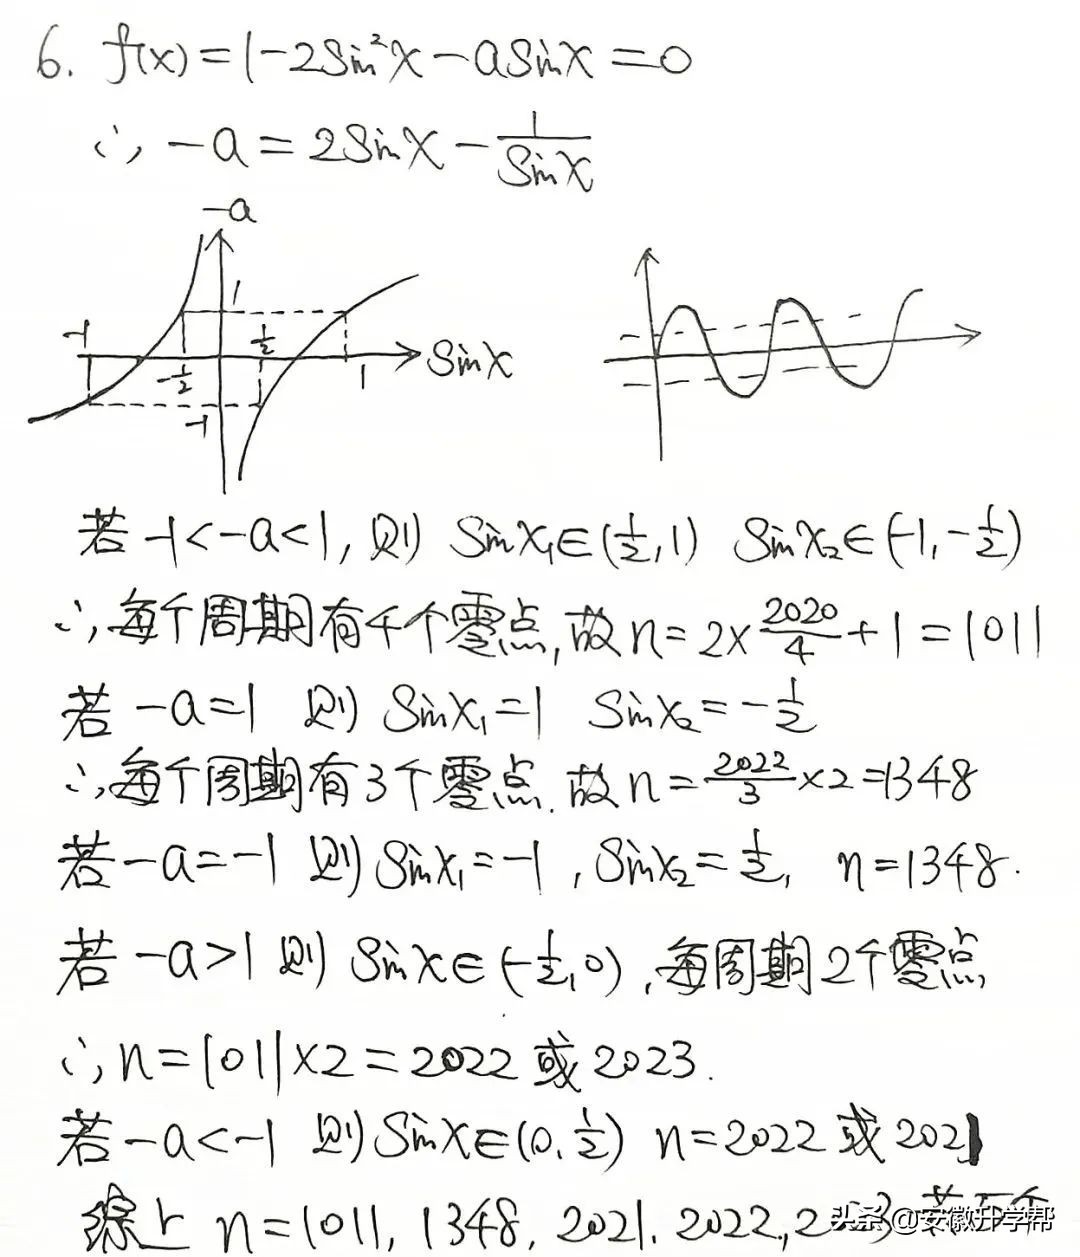 6. f(x)=1-2Sin²x-aSinx=0
∴ -a=2Sinx-1/Sinx
-a
1
-1
1/2
Sinx
-1/2
1
-1
若-1<-a<1, 则 Sinx₁∈(1/2,1) Sinx₂∈(-1,-1/2)
∴每个周期有4个零点,故n=2×2020/4+1=1011
若 -a=1 则 Sinx₁=1 Sinx₂=-1/2
∴每个周期有3个零点.故n=2022/3×2=1348
若-a=-1 则 Sinx₁=-1,Sinx₂=1/2, n=1348.
若 -a>1 则 Sinx∈(-1/2,0),每周期2个零点
∴n=1011×2=2022或2023.
若-a<-1 则Sinx∈(0,1/2) n=2022或2021
综上 n=1011,1348,2021,2022,2023
头条 @安徽升学帮